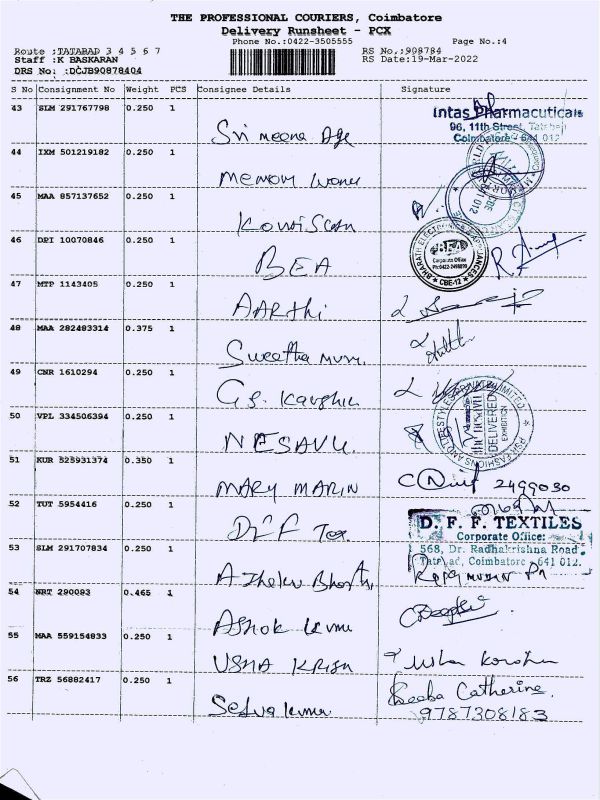 THE PROFESSIONAL COURIERS, Coimbatore
Delivery Runsheet - PCX
Phone No.:0422-3505555 Page No.:4
Route :TATABAD 3 4 5 6 7 RS No.:908784
Staff :K BASKARAN RS Date:19-Mar-2022
DRS No. :DCJB90878404
S No Consignment No Weight PCS Consignee Details Signature
43 SLM 291767798 0.250 1
Sri meena Age
Intas Pharmaceuticals
96, 11th Street, Tatabad
Coimbatore - 641 012
44 IXM 501219182 0.250 1
memory
45 MAA 857137652 0.250 1
46 DPI 10070846 0.250 1
BEA
BHARATH ELECTRONICS
Corporate Office
CBE-12
47 MTP 1143405 0.250 1
AARthi
48 MAA 282483314 0.375 1
Swetha
49 CNR 1610294 0.250 1
G.S.
50 VPL 334506394 0.250 1
NESAVU.
PSR FASHIONS AND LIFESTYLES PRIVATE LIMITED
DELIVERED
EXHIBITION
51 KUR 325931374 0.350 1
MARY MARIN
2499030
52 TUT 5954416 0.250 1
DFF Tex
D. F. F. TEXTILES
Corporate Office:
568, Dr. Radhakrishna Road
Tatabad, Coimbatore - 641 012.
53 SLM 291707834 0.250 1
54 NRT 290083 0.465 1
Ashok
55 MAA 559154833 0.250 1
USHA KRISH
Usha
56 TRZ 56882417 0.250 1
Selvakumar
Seeba Catherine.
9787308183